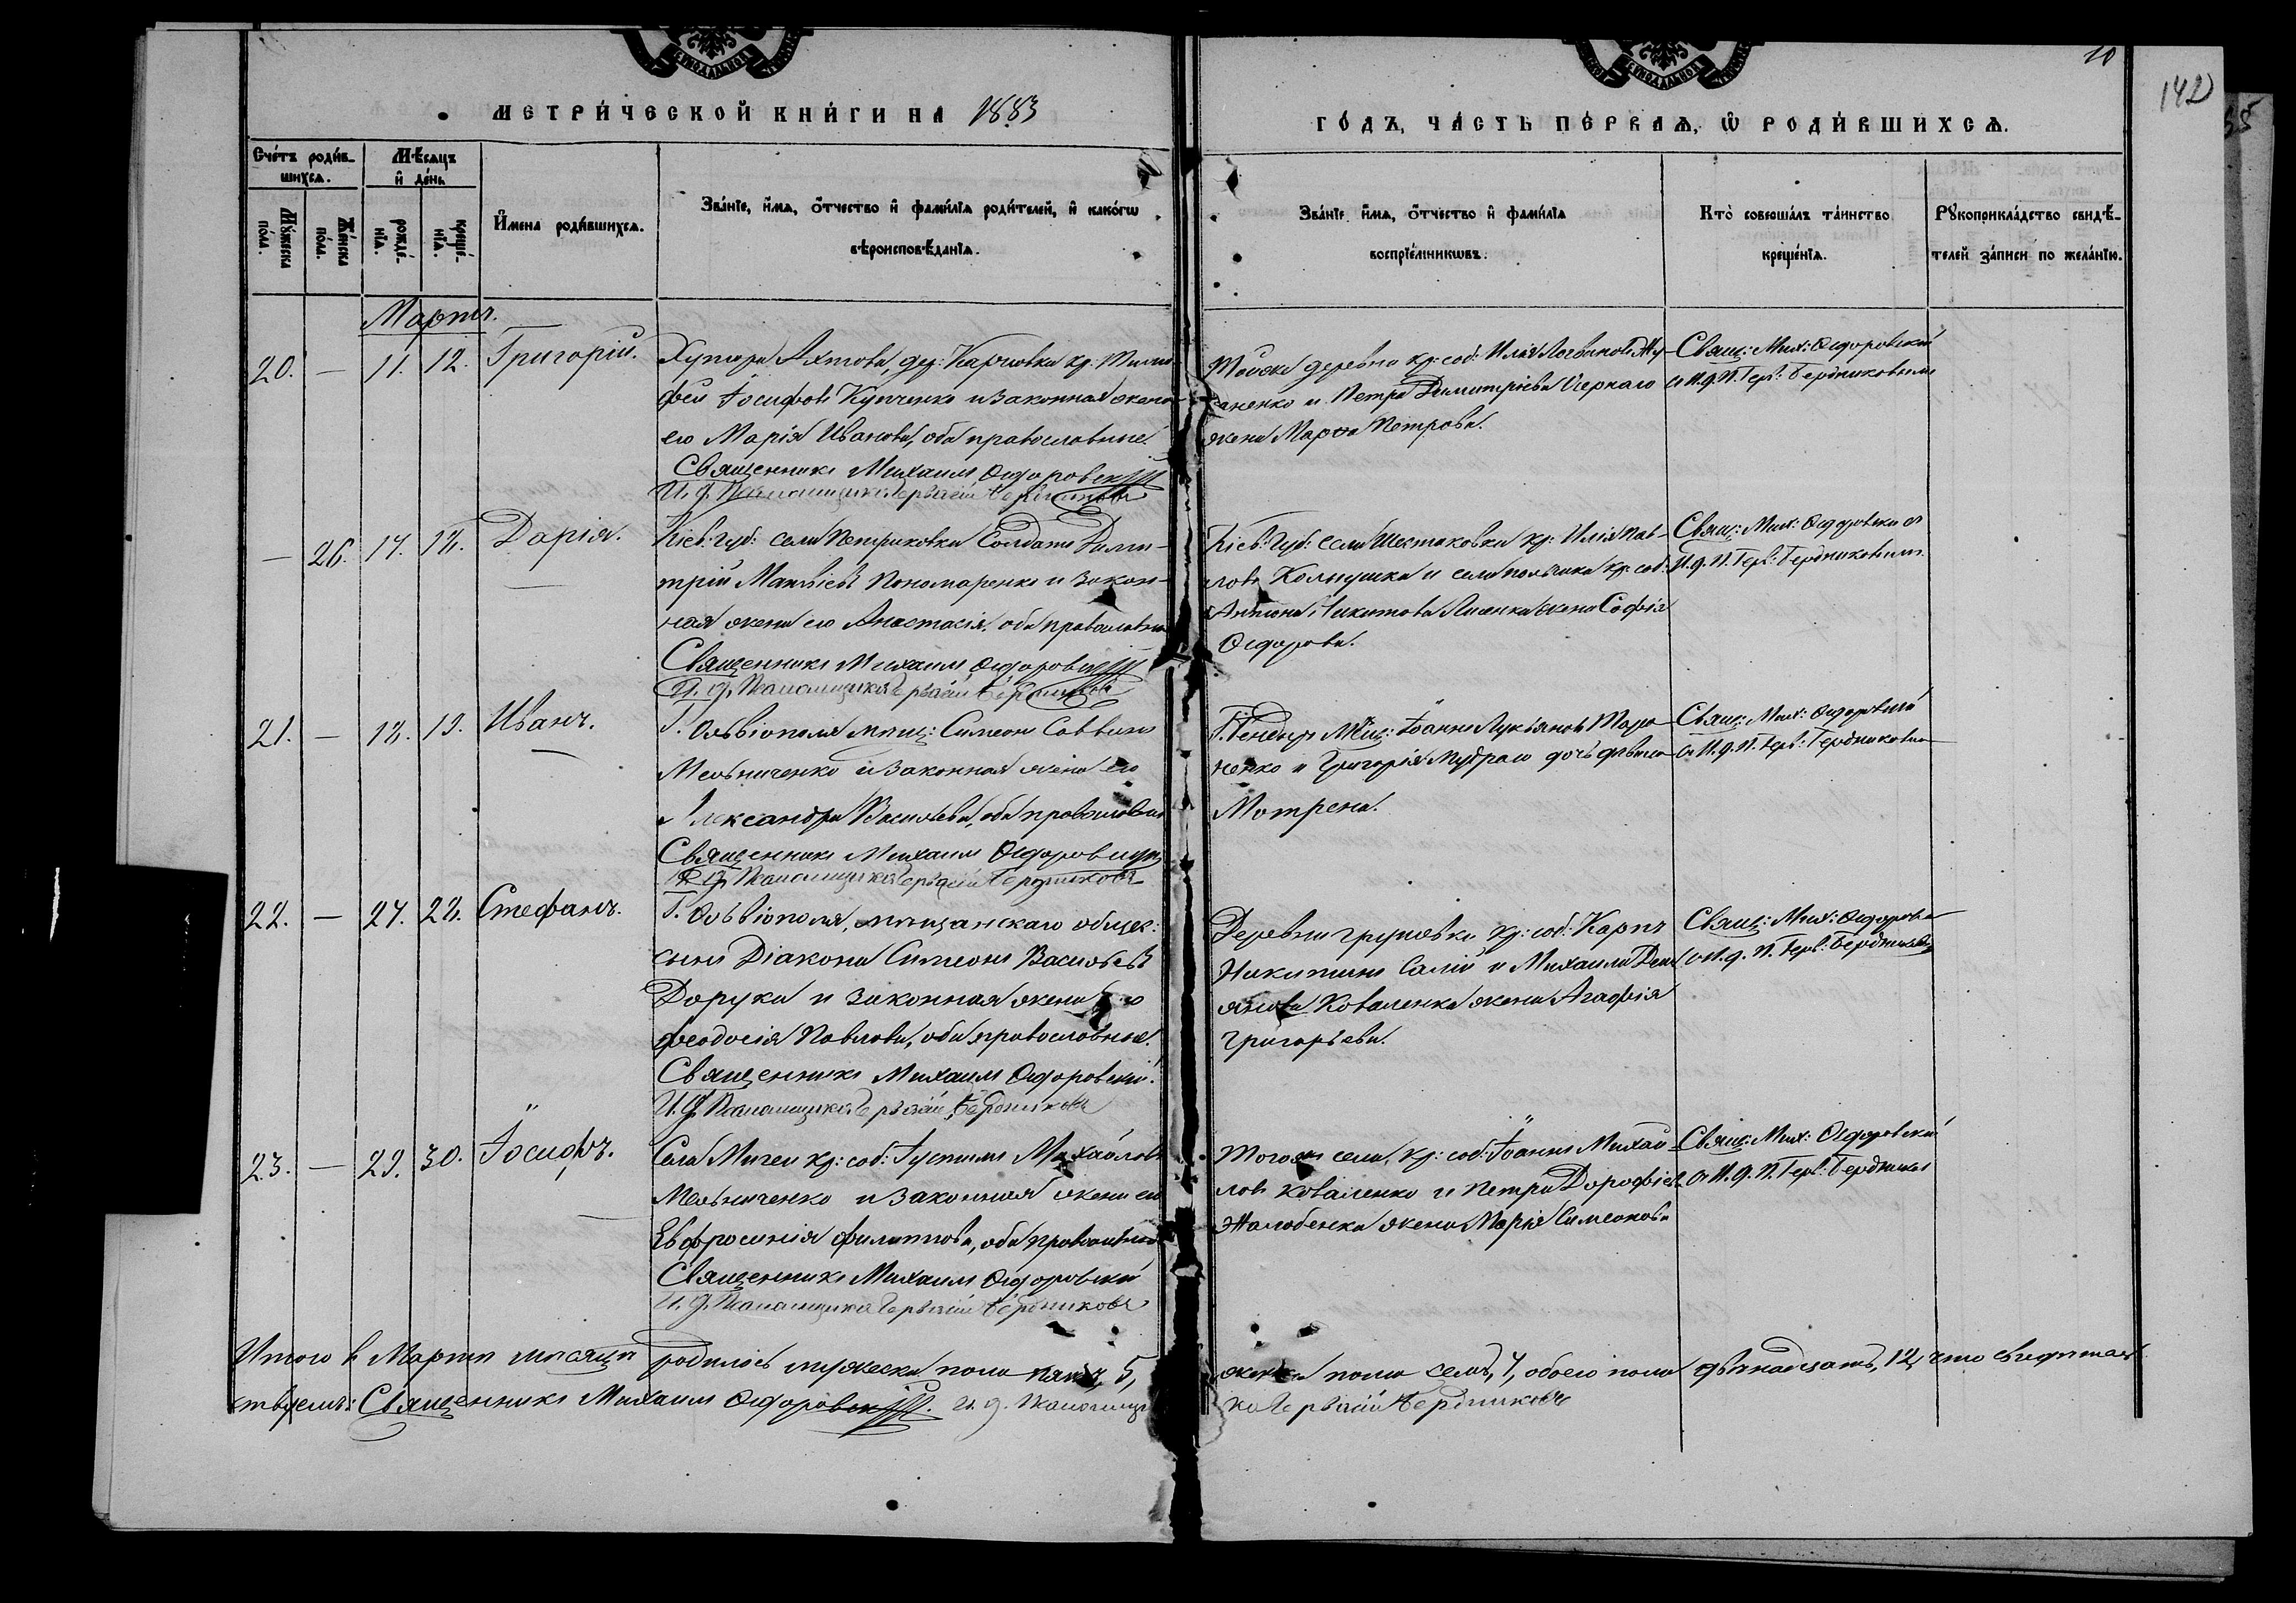 МЕТРИ́ЧЕСКОЙ КНИ́ГИ НА 1883
ГО́ДЪ, ЧА́СТЬ ПЕ́РВАѦ, Ѽ РОДИ́ВШИХСѦ.
10
142
Сче́тъ роди́в-
шихсѧ.
Мѣ́сѧцъ
и҆ де́нь
Мꙋ́жеска по́ла.
Же́нска по́ла.
рожде́-нїѧ.
креще́-нїѧ.
И҆мена роди́вшихсѧ.
Зва́нїе, и҆́мѧ, ѻ҆́тчество и҆ фами́лїѧ роди́телей, и҆ како́гѡ
вѣроисповѣ́данїѧ.
Зва́нїе, и҆́мѧ, ѻ҆́тчество и҆ фами́лїѧ
воспрїе́мникѡвъ.
Кто̀ соверша́лъ та́инство
креще́нїѧ.
Рꙋкоприкла́дство свидѣ́-
телей за́писи по жела́нїю.
Мартъ.
20. — 11. 12. Григорій.
Хутора Ахтова, дер: Карловки кр. Тимо-
фей Іосифовъ Купченко и законная жена
его Марія Иванова, оба православные
Священникъ Михаилъ Ѳедоровскій
И. д. Псаломщика Гервасій Бердниковъ
Тойже деревни кр: соб: Илія Логвиновъ
и Петра Димитріева Чернаго
жена Марѳа Петрова.
Свящ: Мих: Ѳедоровскій
съ И. д. П. Герв: Бердниковымъ
— 26. 17. 18. Дарія.
Кіев: губ: села Петриковки Солдатъ Дими-
трій Матвіевъ Пономаренко и закон-
ная жена его Анастасія, оба православные
Священникъ Михаилъ Ѳедоровскій
И. д. Псаломщика Гервасій Бердниковъ
Кіев: Губ: села Шестаковки кр: Илія Пав-
ловъ и села кр: соб:
Антона Никитова жена Софія
Ѳедорова.
Свящ: Мих: Ѳедоровскій съ
И. д. П. Герв: Бердниковымъ
21. — 18. 19. Иванъ.
Г. Ольвіополя мѣщ: Симеонъ Саввинъ
Мельниченко и законная жена его
Александра Васильева, оба православные
Священникъ Михаилъ Ѳедоровскій
И. д. Псаломщика Гервасій Бердниковъ
Г. Бендеръ мѣщ: Іоаннъ Лукьяновъ Тара-
ненко и Григорія Мудраго дочь дѣвица
Мотрена.
Свящ: Мих: Ѳедоровскій
съ И. д. П. Герв: Бердниковымъ
22. — 27. 28. Стефанъ.
Г. Ольвіополя, мѣщанскаго общес:
сынъ Діакона Симеонъ Васильевъ
Дорука и законная жена его
Феодосія Павлова, оба православные.
Священникъ Михаилъ Ѳедоровскій.
И. д. Псаломщика Гервасій Бердниковъ
Деревни Грушевки кр: соб: Карпъ
Никитинъ Салій и Михаила Деми-
янова Коваленка жена Агафія
Григорьева.
Свящ: Мих: Ѳедоровск
съ И. д. П. Герв: Бердниковы
23. — 29. 30. Іосифъ.
Села Мигеи кр: соб: Іустинъ Михайловъ
Мельниченко и законная жена его
Евфросинія Филиппова, оба православные
Священникъ Михаилъ Ѳедоровскій
И. д. Псаломщика Гервасій Бердниковъ
Тогоже села, кр: соб: Іоаннъ Михай-
ловъ Коваленко и Петра Дорофіева
Жалобенка жена Марія Симеонова
Свящ: Мих: Ѳедоровскій
съ И. д. П. Герв: Бердников
Итого въ Мартѣ мѣсяцѣ родилось мужеска пола пять, 5, женска пола семь, 7, обоего пола двѣнадцать, 12, что свидѣтель-
ствуемъ: Священникъ Михаилъ Ѳедоровскій. И. д. Псаломщи-
ка Гервасій Бердниковъ